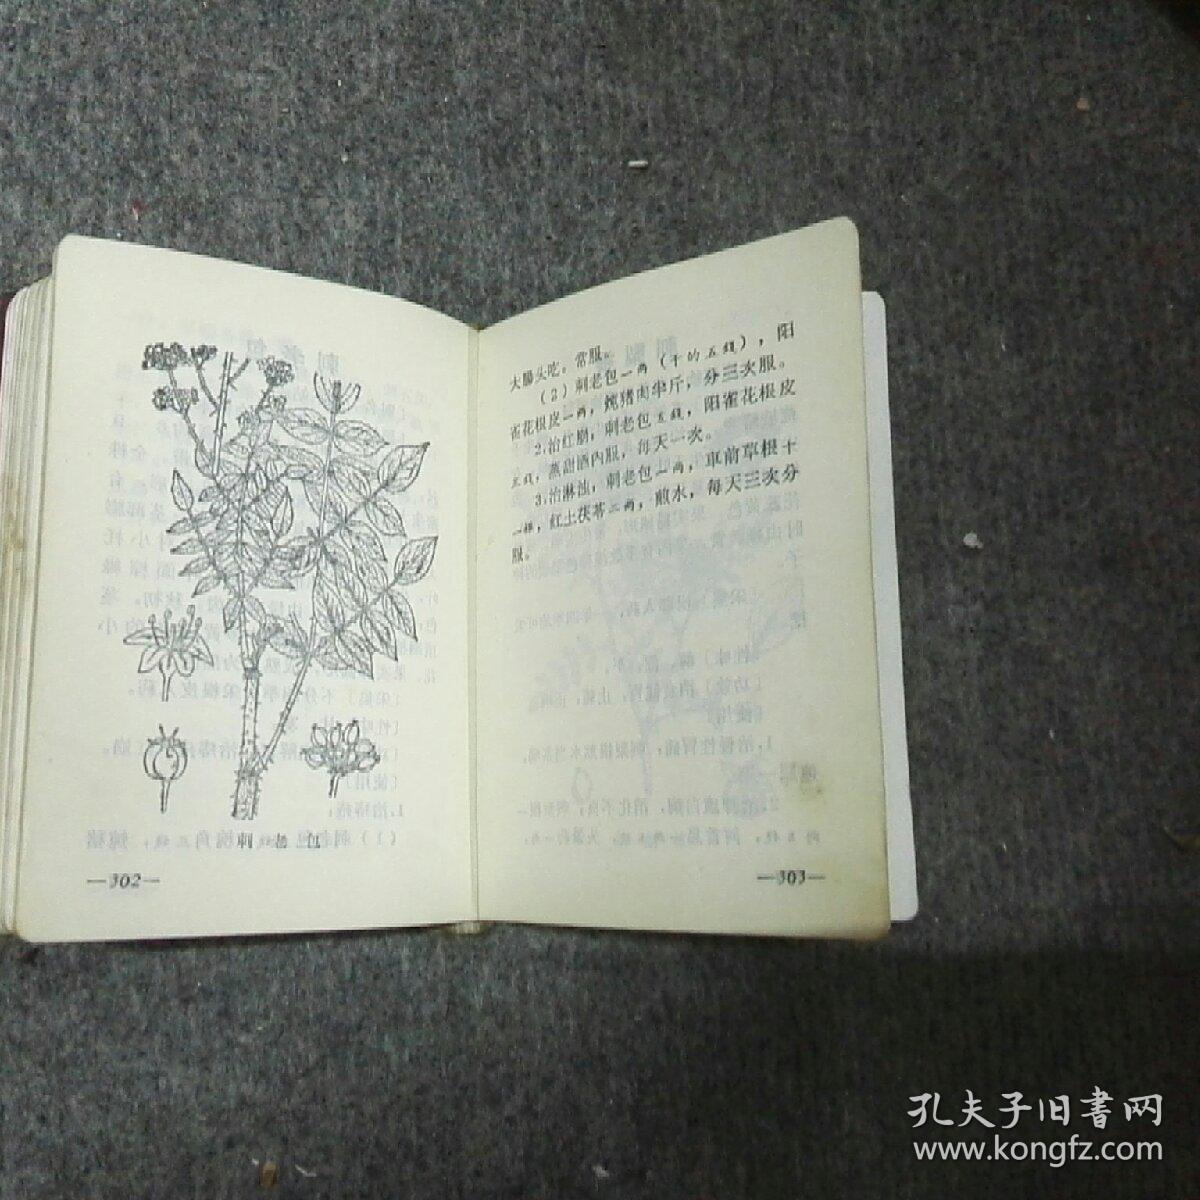 刺老包
—302—
大肠头吃。常服。
（2）刺老包一两（干的五钱），阳
雀花根皮一两，炖猪肉半斤，分三次服。
2.治红崩，刺老包五钱，阳雀花根皮
五钱，蒸甜酒内服，每天一次。
3.治淋浊，刺老包一两，車前草根十
一根，红土茯苓二两，煎水，每天三次分
服。
—303—
孔夫子旧書网
www.kongfz.com